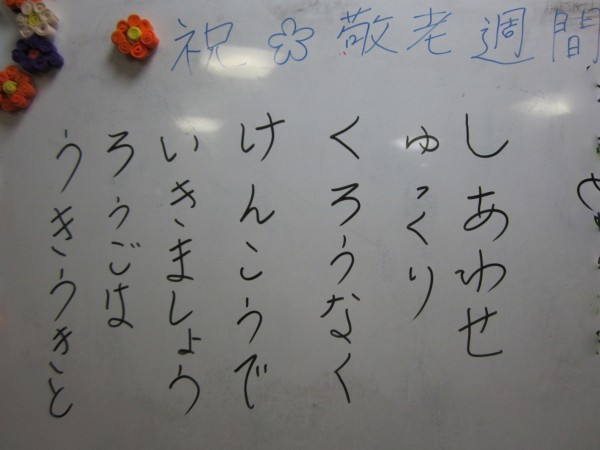 祝 敬老週間
しあわせ
ゅっくり
くろうなく
けんこうで
いきましょう
ろうごは
うきうきと